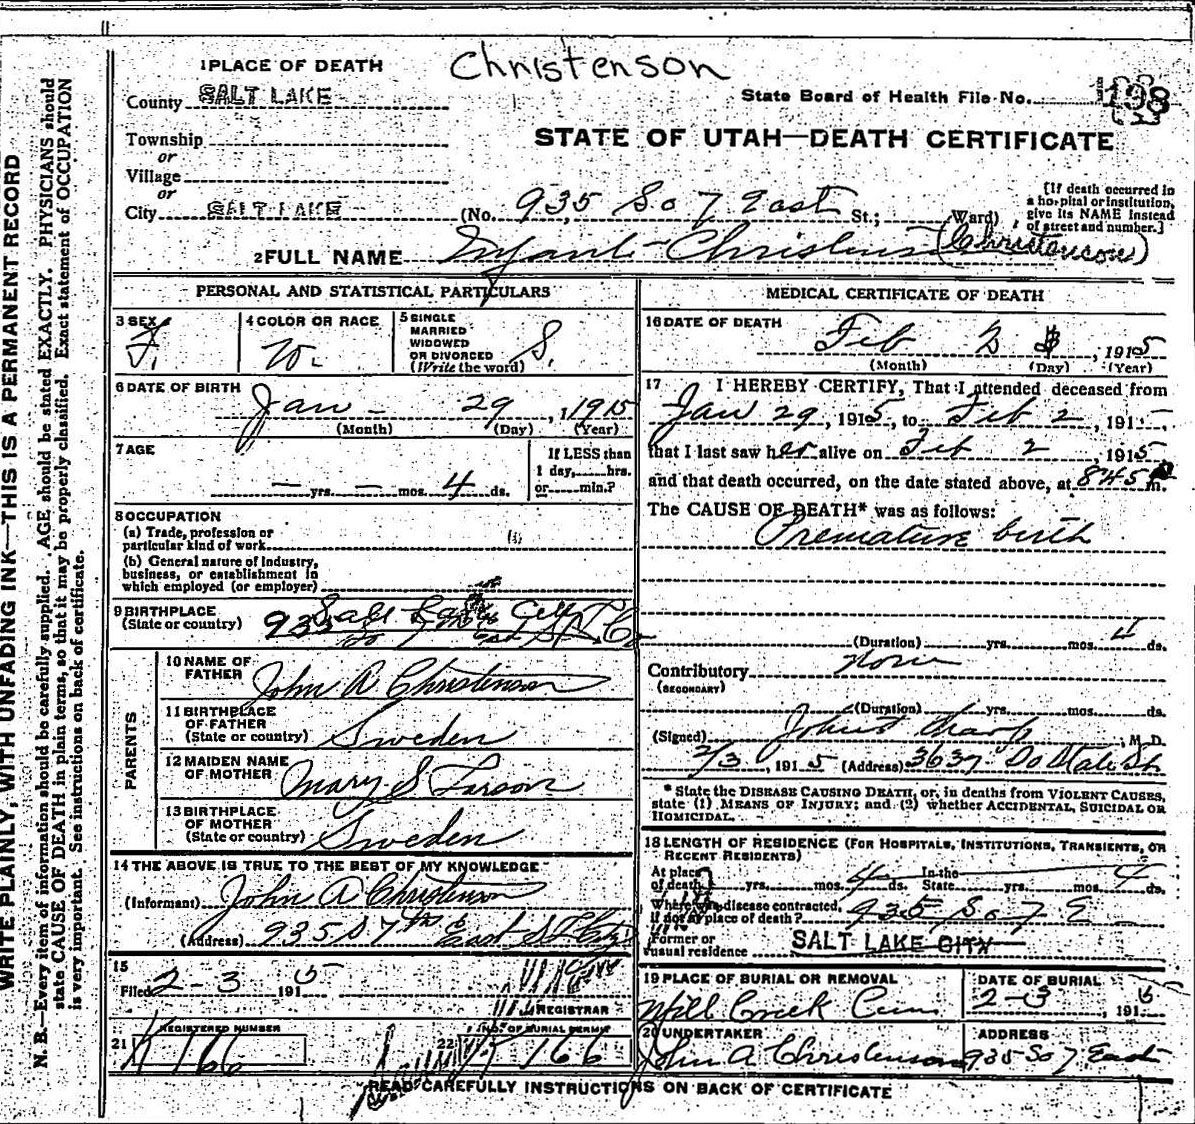 Christenson
1 PLACE OF DEATH
County SALT LAKE
State Board of Health File No.
Township
or
Village
or
City SALT LAKE
STATE OF UTAH—DEATH CERTIFICATE
(No. 935 So 7 East St.; Ward)
[If death occurred in
a hospital or institution,
give its NAME instead
of street and number.]
2 FULL NAME Infant Christenson (Christenson)
PERSONAL AND STATISTICAL PARTICULARS
3 SEX F.
4 COLOR OR RACE W.
5 SINGLE
MARRIED
WIDOWED
OR DIVORCED
(Write the word) S.
6 DATE OF BIRTH
Jan - 29, 1915
(Month) (Day) (Year)
7 AGE
— yrs. — mos. 4 ds.
If LESS than
1 day, hrs.
or min.?
8 OCCUPATION
(a) Trade, profession or
particular kind of work
(b) General nature of industry,
business, or establishment in
which employed (or employer)
9 BIRTHPLACE
(State or country) Salt Lake City
935 So 7 East
PARENTS
10 NAME OF
FATHER John A Christenson
11 BIRTHPLACE
OF FATHER
(State or country) Sweden
12 MAIDEN NAME
OF MOTHER Mary S Larson
13 BIRTHPLACE
OF MOTHER
(State or country) Sweden
14 THE ABOVE IS TRUE TO THE BEST OF MY KNOWLEDGE
(Informant) John A Christenson
(Address) 935 S 7th East S L City
15
Filed 2-3 1915
REGISTRAR
REGISTERED NUMBER
21 166
NO. OF BURIAL PERMIT
22 166
MEDICAL CERTIFICATE OF DEATH
16 DATE OF DEATH
Feb 2, 1915
(Month) (Day) (Year)
17 I HEREBY CERTIFY, That I attended deceased from
Jan 29, 1915, to Feb 2, 191
that I last saw her alive on Feb 2, 1915
and that death occurred, on the date stated above, at 845 P m.
The CAUSE OF DEATH* was as follows:
Premature birth
(Duration) yrs. mos. 4 ds.
Contributory none
(SECONDARY)
(Duration) yrs. mos. ds.
(Signed) John Sharp, M.D.
2/3, 1915 (Address) 3637 So State St
* State the DISEASE CAUSING DEATH, or, in deaths from VIOLENT CAUSES,
state (1) MEANS OF INJURY; and (2) whether ACCIDENTAL, SUICIDAL OR
HOMICIDAL.
18 LENGTH OF RESIDENCE (FOR HOSPITALS, INSTITUTIONS, TRANSIENTS, OR
RECENT RESIDENTS)
At place
of death yrs. mos. 4 ds. In the State yrs. mos. 4 ds.
Where was disease contracted,
if not at place of death? 935 So 7 E
Former or
usual residence SALT LAKE CITY
19 PLACE OF BURIAL OR REMOVAL
Mill Creek Cem
DATE OF BURIAL
2-3, 1915
20 UNDERTAKER
John A Christenson
ADDRESS
935 So 7 East
READ CAREFULLY INSTRUCTIONS ON BACK OF CERTIFICATE
WRITE PLAINLY, WITH UNFADING INK—THIS IS A PERMANENT RECORD
N. B.—Every item of information should be carefully supplied. AGE should be stated EXACTLY. PHYSICIANS should
state CAUSE OF DEATH in plain terms, so that it may be properly classified. Exact statement of OCCUPATION
is very important. See instructions on back of certificate.